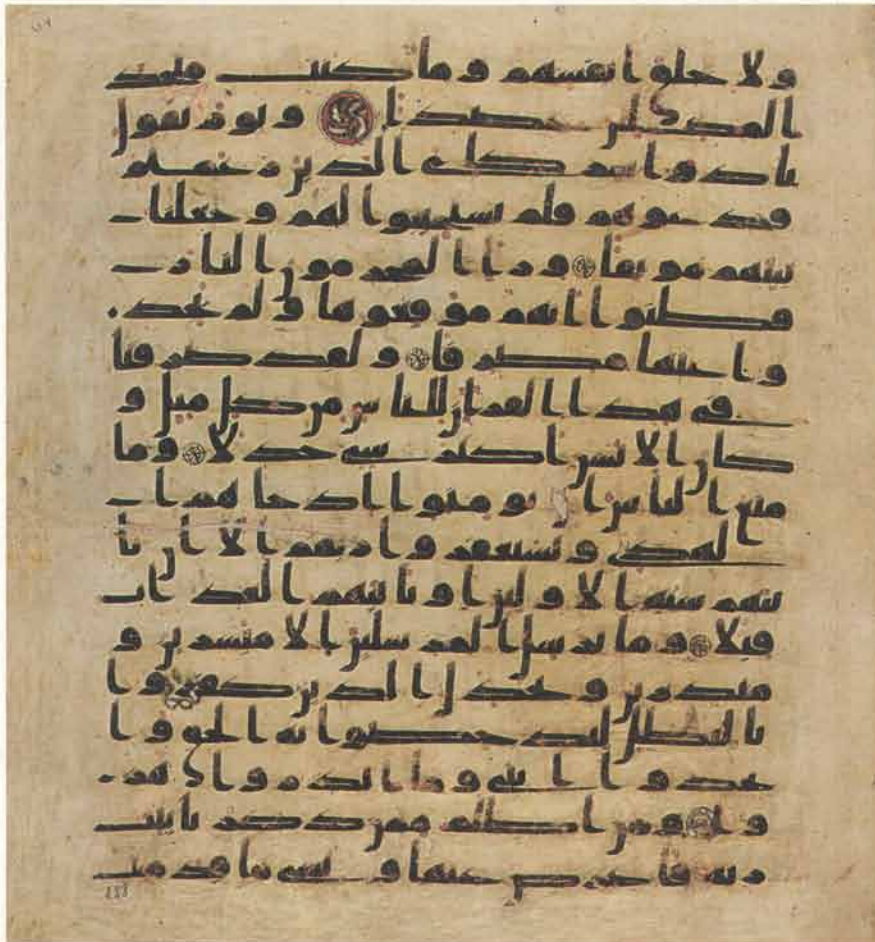 ولا خلق انفسهم وما كنت متخذ
المضلين عضدا ويوم يقول
نادوا شركاى الذين زعمتم
فدعوهم فلم يستجيبوا لهم وجعلنا
بينهم موبقا ورا المجرمون النار
فظنوا انهم موقعوها ولم يجد
وا عنها مصرفا ولقد صرفنا
فى هذا القران للناس من كل مثل و
كان الانسن اكثر شى جدلا وما
منع الناس ان يومنوا اذ جاهم ا
لهدى ويستغفروا ربهم الا ان تا
تيهم سنه الاولين او ياتيهم العذاب
قبلا وما نرسل المرسلين الا مبشرين و
منذرين ويجدل الذين كفروا
بالبطل ليدحضوا به الحق وا
تخذوا ايتى وما انذروا هز
وا ومن اظلم ممن ذكر بايت
ربه فاعرض عنها ونسى ما قدمت